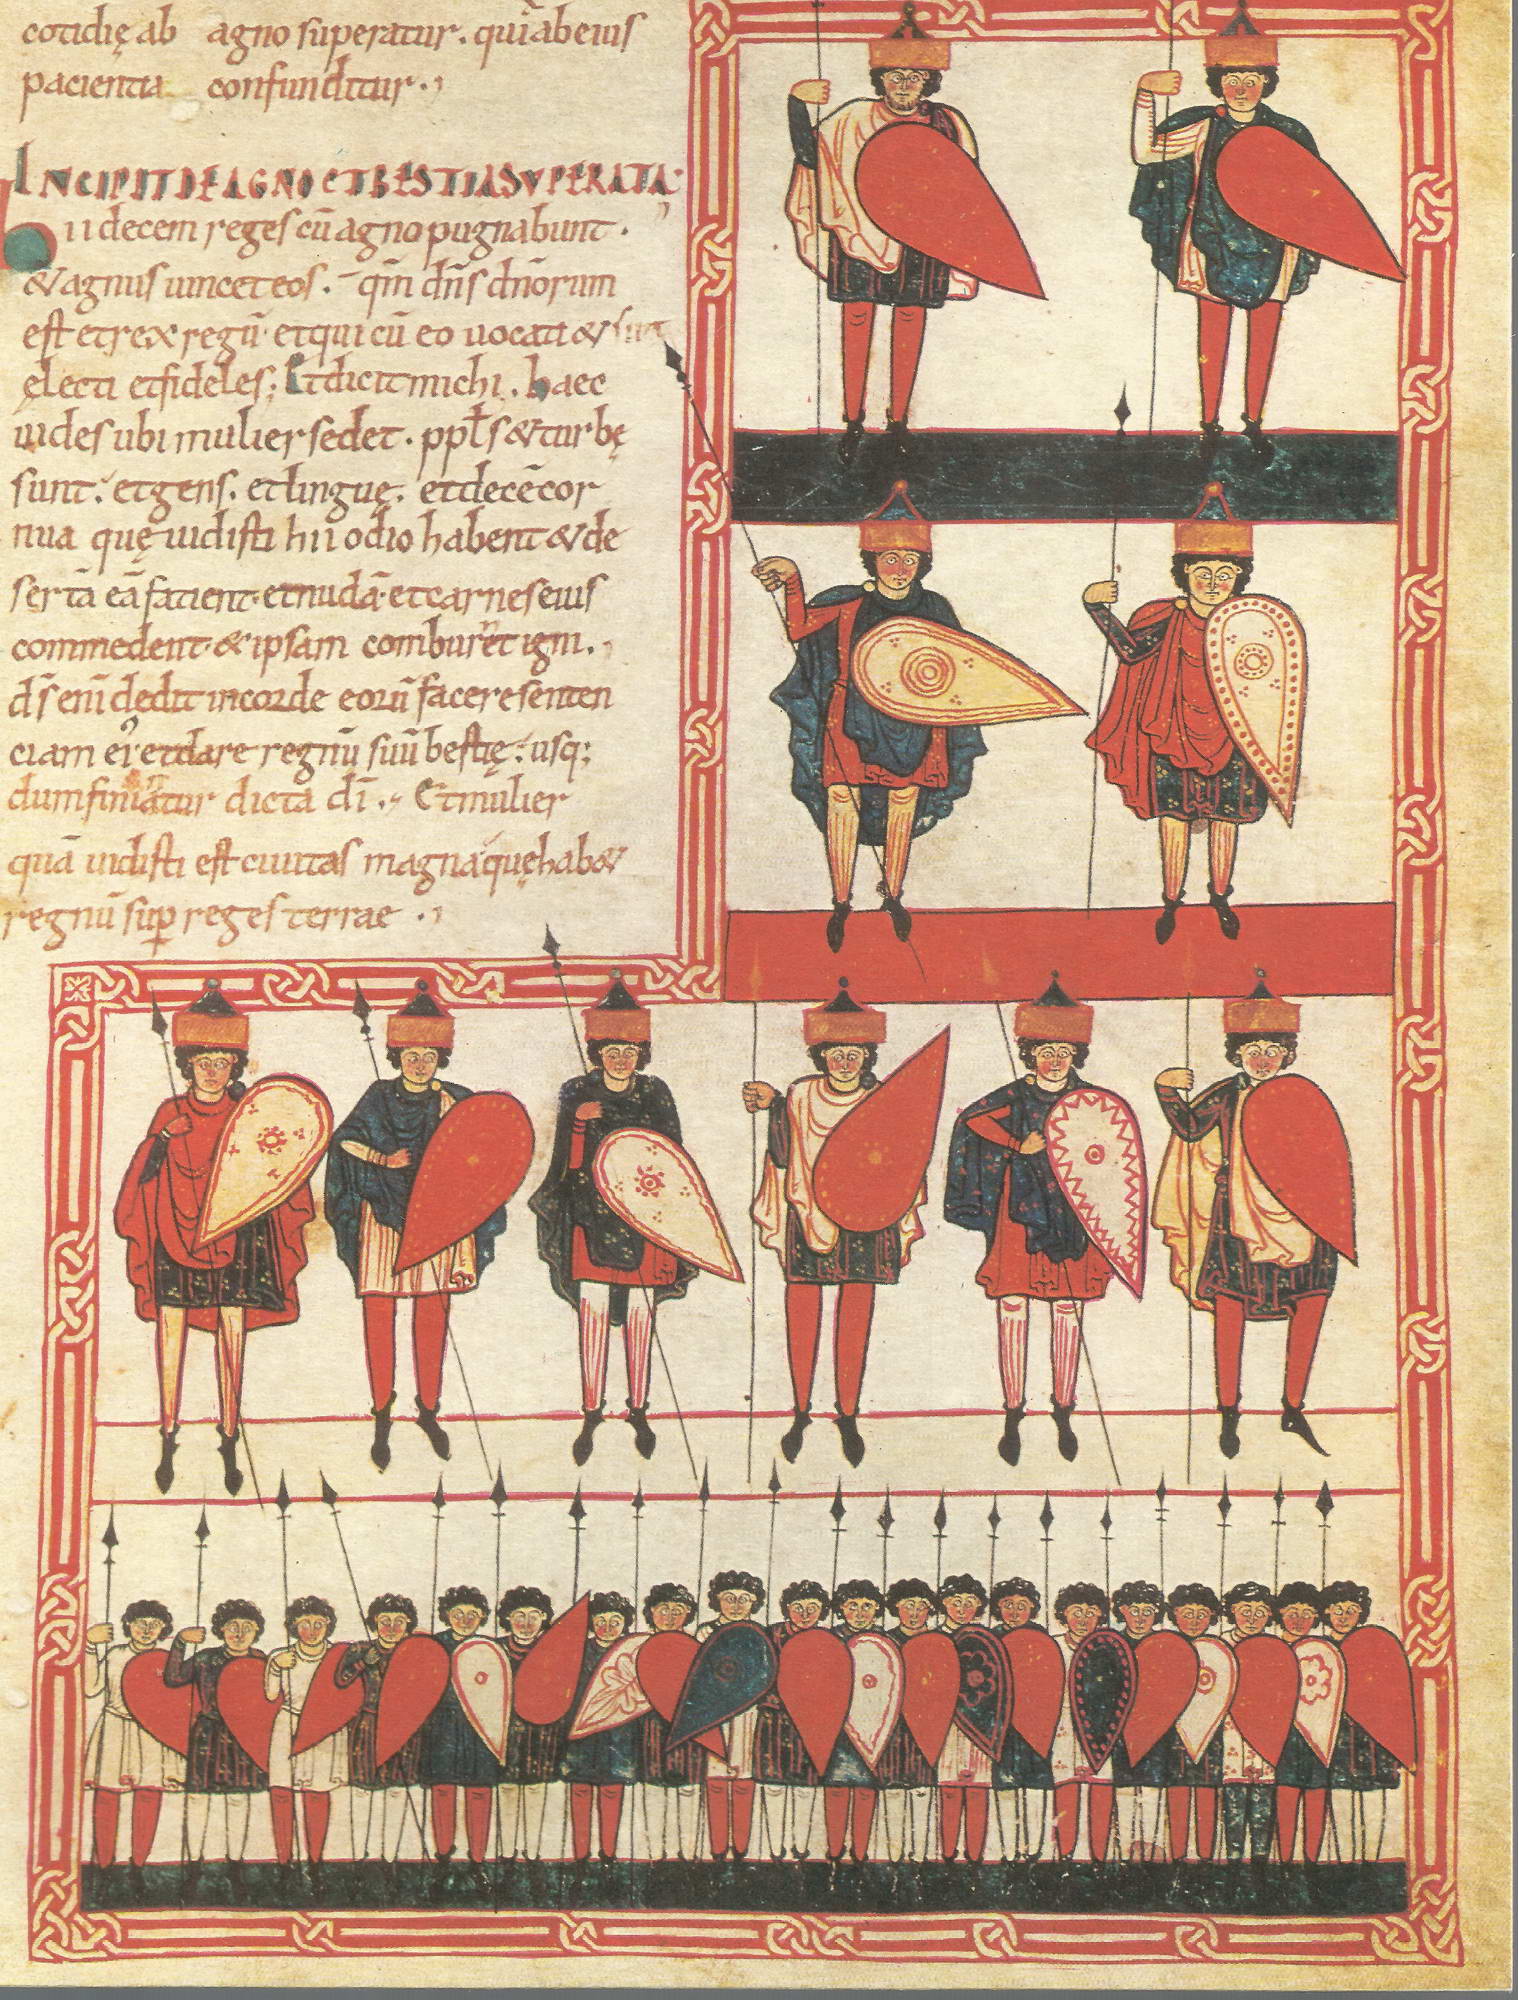 cotidię ab agno superatur. qui ab eius
pacientia confunditur.,
INCIPIT DE AGNO ET BESTIA SUPERATA.
hii decem reges cū agno pugnabunt.
& agnus uincet eos. qm̄ dn̄s dn̄orum
est et rex regū. et qui cū eo uocati & sunt
ęlecti et fideles; Et dicit michi. haec
uides ubi mulier sedet. ppl̄s & turbę
sunt. et gens. et linguę. et decē cor
nua quę uidisti hii odio habent & de
sertā eā facient. et nudā. et carnes eius
commedent. & ipsam comburent igni.,
ds̄ enī dedit in corde eorū facere senten
ciam ei et dare regnū suū bestię. usq;
dum finiatur dicta dī. Et mulier
quā uidisti est ciuitas magna quę hab&
regnū sup reges terrae .,